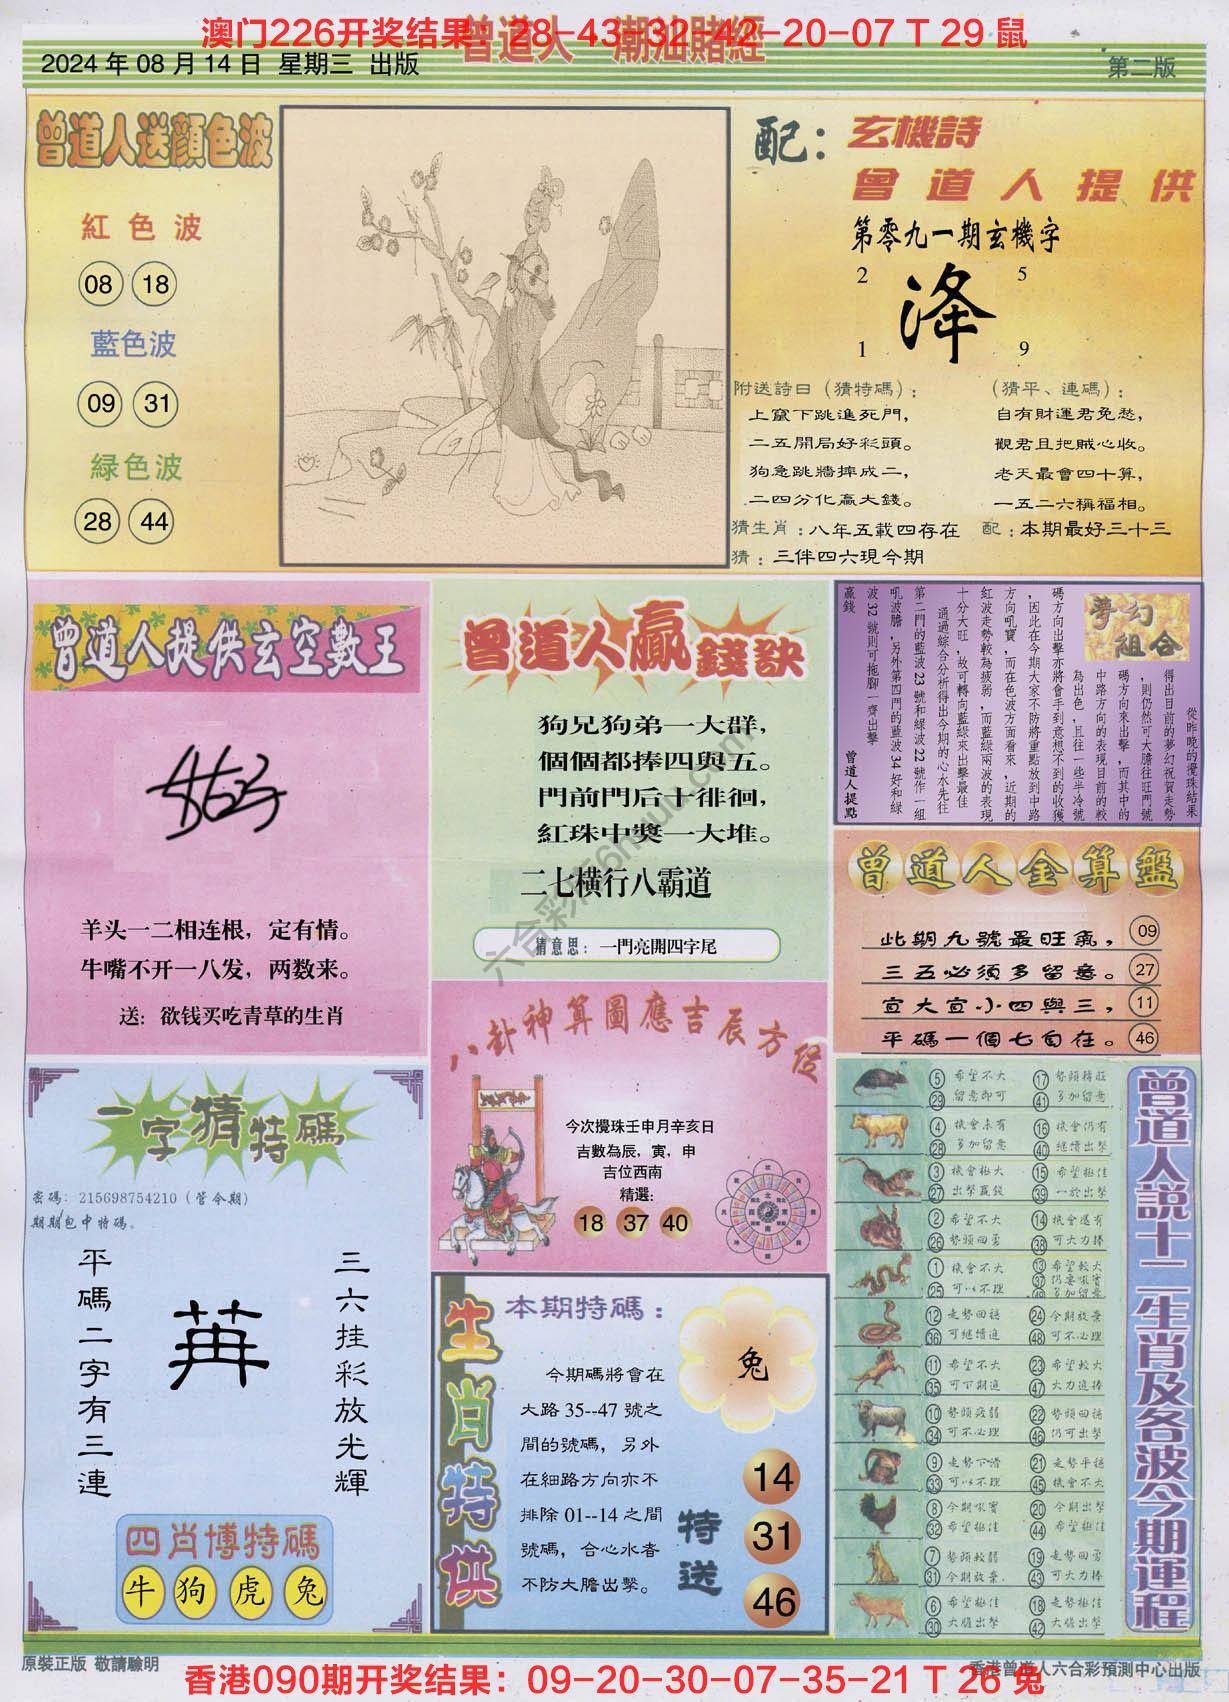 澳门226开奖结果：28-43-32-42-20-07 T 29 鼠
曾道人 潮汕賭經
2024 年 08 月 14 日 星期三 出版
第二版
曾道人送顏色波
紅色波
08 18
藍色波
09 31
緑色波
28 44
配：玄機詩
曾道人提供
第零九一期玄機字
2 5
1 9
附送詩曰（猜特碼）：
上竄下跳進死門，
二五開局好彩頭。
狗急跳牆摔成二，
二四分化赢大錢。
（猜平、連碼）：
自有財運君免愁，
觀君且把賊心收。
老天最會四十算，
一五二六稱福相。
猜生肖：八年五載四存在
配：本期最好三十三
猜：三伴四六現今期
曾道人提供玄空數王
羊头一二相连根，定有情。
牛嘴不开一八发，两数来。
送：欲钱买吃青草的生肖
曾道人赢錢訣
狗兄狗弟一大群，
個個都捧四與五。
門前門后十徘徊，
紅珠中獎一大堆。
二七横行八霸道
猜意思：一門亮開四字尾
夢幻組合
從昨晚的攪珠結果
得出目前的夢幻祝賀走勢
，則仍然可大膽往旺門號
碼方向來出擊，而其中的
中路方向的表現目前的較
為出色，且往一些半冷號
碼方向出擊亦將會手到意想不到的收獲
，因此在今期大家不防將重點放到中路
方向吼寶，而在色波方面看來，近期的
紅波走勢較為疲弱，而藍綠兩波的表現
十分大旺，故可轉向藍綠來出擊最佳
通過綜合分析得出今期的心水先往
第二門的藍波23號和綠波22號作一組
吼波膽，另外第四門的藍波34好和綠
波32號則可拖腳一齊出擊
贏錢
曾道人提點
曾道人金算盤
此期九號最旺氣， 09
三五必須多留意。 27
宜大宜小四與三， 11
平碼一個七自在。 46
八卦神算圖應吉辰方位
今次攪珠壬申月辛亥日
吉數為辰，寅，申
吉位西南
精選：
18 37 40
一字猜特碼
密碼：215698754210（管今期）
期期包中特碼。
平碼二字有三連
三六挂彩放光輝
四肖博特碼
牛 狗 虎 兔
生肖特供
本期特碼：
兔
今期碼將會在
大路 35--47 號之
間的號碼，另外
在細路方向亦不
排除 01--14 之間
號碼，合心水者
不防大膽出擊。
特送
14
31
46
曾道人說十二生肖及各波今期運程
5 希望不大 17 勢頭精旺
29 留意即可 41 多加留意
4 機會未有 16 機會仍有
28 多加留意 40 繼續出擊
3 機會極大 15 希望極佳
27 出擊贏錢 39 一於出擊
2 希望不大 14 機會還有
26 勢頭回勇 38 可大力捧
1 機會不大 13 希望較大
25 可以不理 37 仍要吼實
49 多加留意
12 走勢回穩 24 今期放棄
36 可繼續追 48 可不必理
11 希望不大 23 希望較大
35 可下期追 47 大力追捧
10 勢頭疲弱 22 勢頭回穩
34 可不必理 46 仍可出擊
9 走勢下滑 21 走勢平穩
33 可以不理 45 機會不大
8 今期吼實 20 今期出擊
32 希望極佳 44 希望極佳
7 勢頭較弱 19 走勢回勇
31 今期放棄. 43 可大力捧
6 希望極佳 18 走勢極佳
30 大膽出擊 42 大膽出擊
原裝正版 敬請驗明
香港曾道人六合彩預測中心出版
香港090期开奖结果：09-20-30-07-35-21 T 26 兔